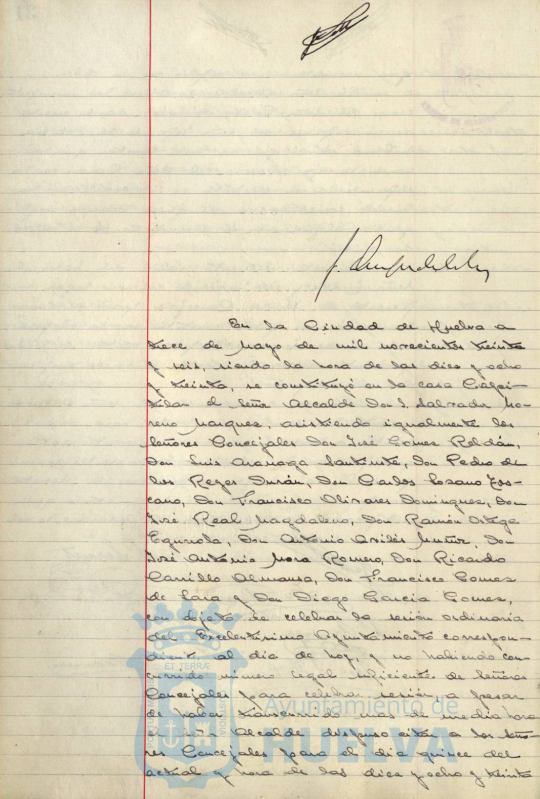 En la Ciudad de Huelva a
trece de Mayo de mil novecientos treinta
y seis, siendo la hora de las diez y ocho
y treinta, se constituyó en la casa Capi-
tular el Señor Alcalde Don S. Salvador Mo-
reno Marquez, asistiendo igualmente los
Señores Concejales Don José Gomez Roldán,
Don Luis Don Pedro de
los Reyes Durán, Don Carlos Lozano Tos-
cano, Don Francisco Olivares Dominguez, Don
José Real Magdaleno, Don Ramón Ortega
Don Antonio Avilés Muñoz, Don
José Antonio Mora Romero, Don Ricardo
Carrillo Almansa, Don Francisco Gomez
de Lara y Don Diego Garcia Gomez,
con objeto de celebrar la sesión ordinaria
del Excelentísimo Ayuntamiento correspon-
diente al dia de hoy, y no habiendo con-
currido número legal suficientes de Señores
Concejales para celebrar sesión, a pesar
de haber transcurrido mas de media hora
el Señor Alcalde dispuso citar a los Seño-
res Concejales para el dia quince del
actual y hora de las diez y ocho y treinta
ET TERRÆ
Ayuntamiento de
HUELVA